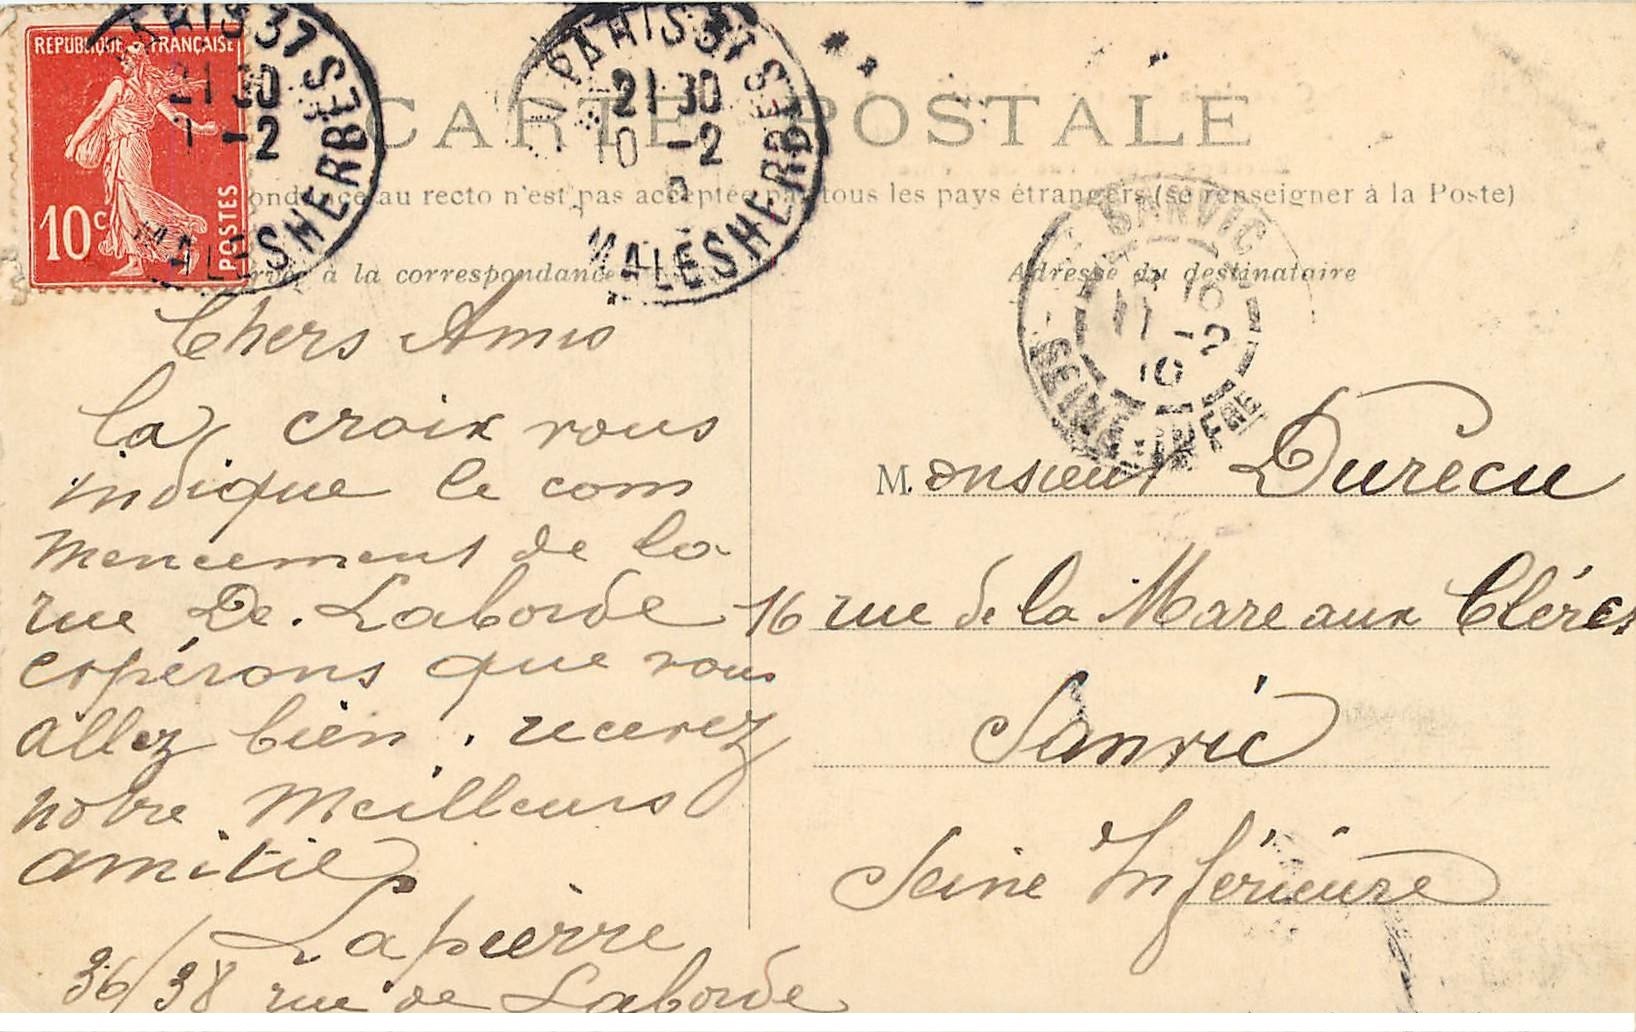 REPUBLIQUE FRANÇAISE
10c POSTES
PARIS 37
21 30
-2
MALESHERBES
PARIS 37
21 30
10 -2
MALESHERBES
CARTE POSTALE
au recto n'est pas acceptée tous les pays étrangers (se renseigner à la Poste)
à la correspondance
Adresse du destinataire
SANVIC
16
11 -2
10
SEINE-INFRE
Chers Amis
La croix vous
indique le com
mencement de la
rue De. Laborde
espérons que vous
allez bien. recevez
notre meilleurs
amitiés
Lapierre
36/38 rue de Laborde
Monsieur Durecu
16 rue de la Mare aux Clercs
Sanvic
Seine Inférieure